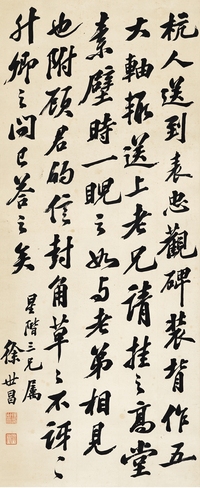 杭人送到表忠觀碑裝背作五
大軸輙送上老兄請挂之高堂
素壁時一睨之如与老弟相見
也附顾君的信封角草之不謹之
升卿之問已答之矣
星階三兄属
徐世昌